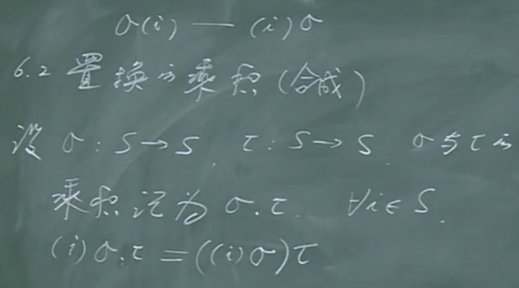 σ(i) — (i)σ
6.2 置换的乘积(合成)
设 σ: S→S, τ: S→S. σ与τ的
乘积记为 σ.τ. ∀i∈S.
(i)σ.τ = ((i)σ)τ